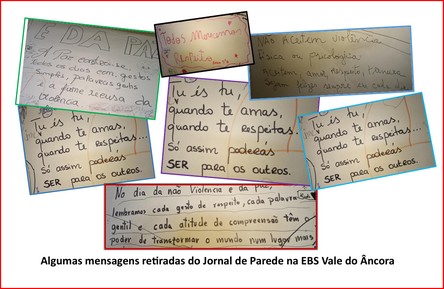 E DA PAZ
A Paz constrói-se,
todos os dias com, gestos
simples, palavras gentis
e a firme recusa da
violência
Todos Merecemos
Respeito
NÃO Aceitem violência
física ou psicológica
aceitem, amor, respeito,
Tu és tu,
quando te amas,
quando te respeitas...
Só assim poderás
SER para os outros.
Tu és tu,
quando te amas,
quando te respeitas...
Só assim poderás
SER para os outros.
Tu és tu,
quando te amas,
quando te respeitas...
Só assim poderás
SER para os outros.
No dia da não Violência e da paz,
lembramos cada gesto de respeito, cada palavra
gentil e cada atitude de compreensão têm o
poder de transformar o mundo num lugar mais
Algumas mensagens retiradas do Jornal de Parede na EBS Vale do Âncora